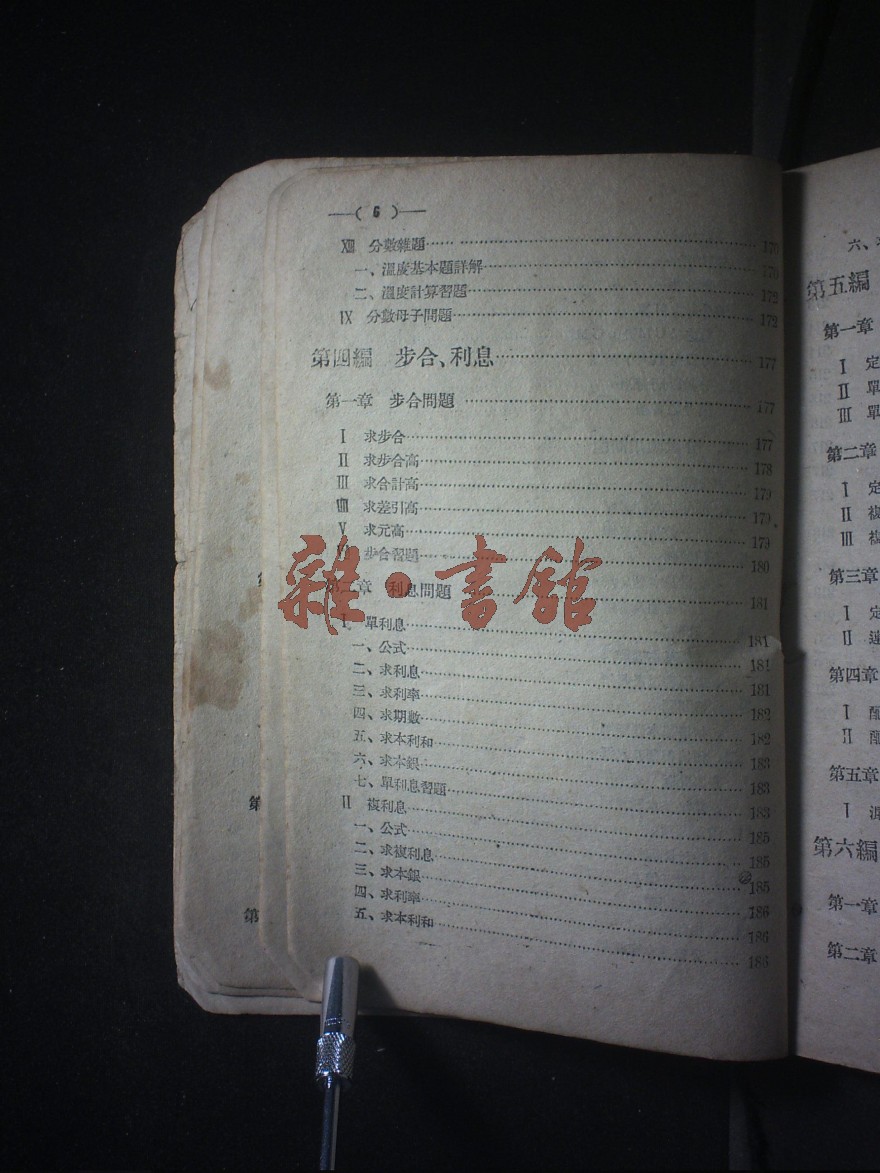 —( 6 )—
XIII 分數雜題………170
一、溫度基本題詳解………170
二、溫度計算習題………172
IX 分數母子問題………172
第四編 步合、利息………177
第一章 步合問題………177
I 求步合………177
II 求步合高………178
III 求合計高………179
VIII 求差引高………179
V 求元高………179
步合習題………180
第二章 利息問題………181
I 單利息………181
一、公式………181
二、求利息………181
三、求利率………182
四、求期數………182
五、求本利和………183
六、求本銀………183
七、單利息習題………183
II 複利息………185
一、公式………185
二、求複利息………185
三、求本銀………186
四、求利率………186
五、求本利和………186
雜·書館
第
第
六、
第五編
第一章
I 定
II 單
III 單
第二章
I 定
II 複
III 複
第三章
I 定
II 速
第四章
I 配
II 配
第五章
I 混
第六編
第一章
第二章